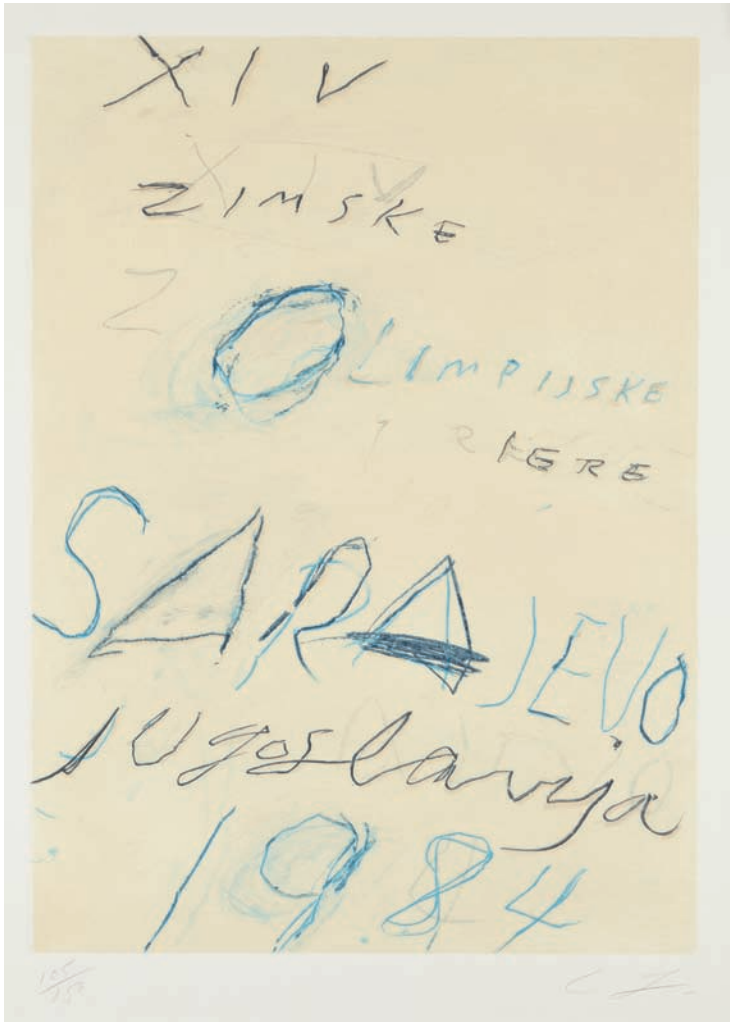 XIV
ZIMSKE
OLIMPIJSKE
IGRE
SARAJEVO
Jugoslavija
1984